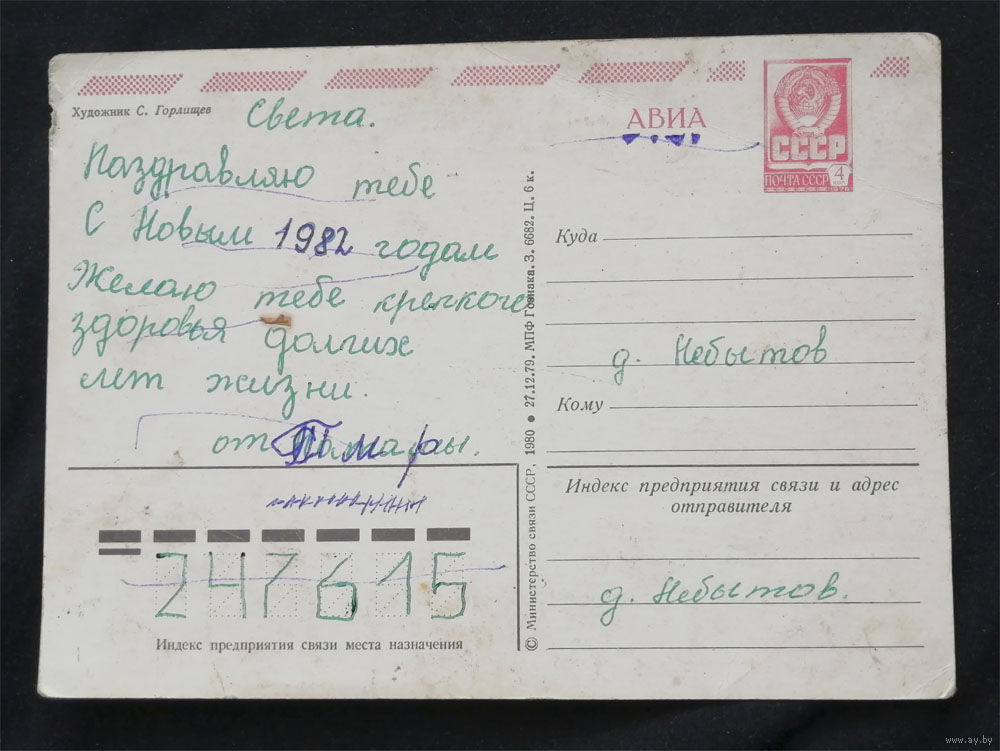 Художник С. Горлищев
Света.
Поздравляю тебе
С Новым 1982 годам
Желаю тебе крепкого
здоровья долгих
лет жизни.
от
247615
Индекс предприятия связи места назначения
© Министерство связи СССР, 1980 • 27.12.79. МПФ Гознака. З. 6682. Ц. 6 к.
АВИА
СССР
ПОЧТА СССР
4
Куда
д. Небытов
Кому
Индекс предприятия связи и адрес
отправителя
д. Небытов.
www.ay.by